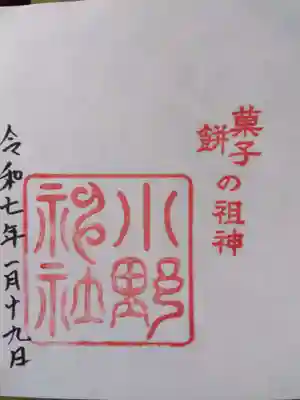 菓子
餅の祖神
小野
神社
令和七年一月十九日